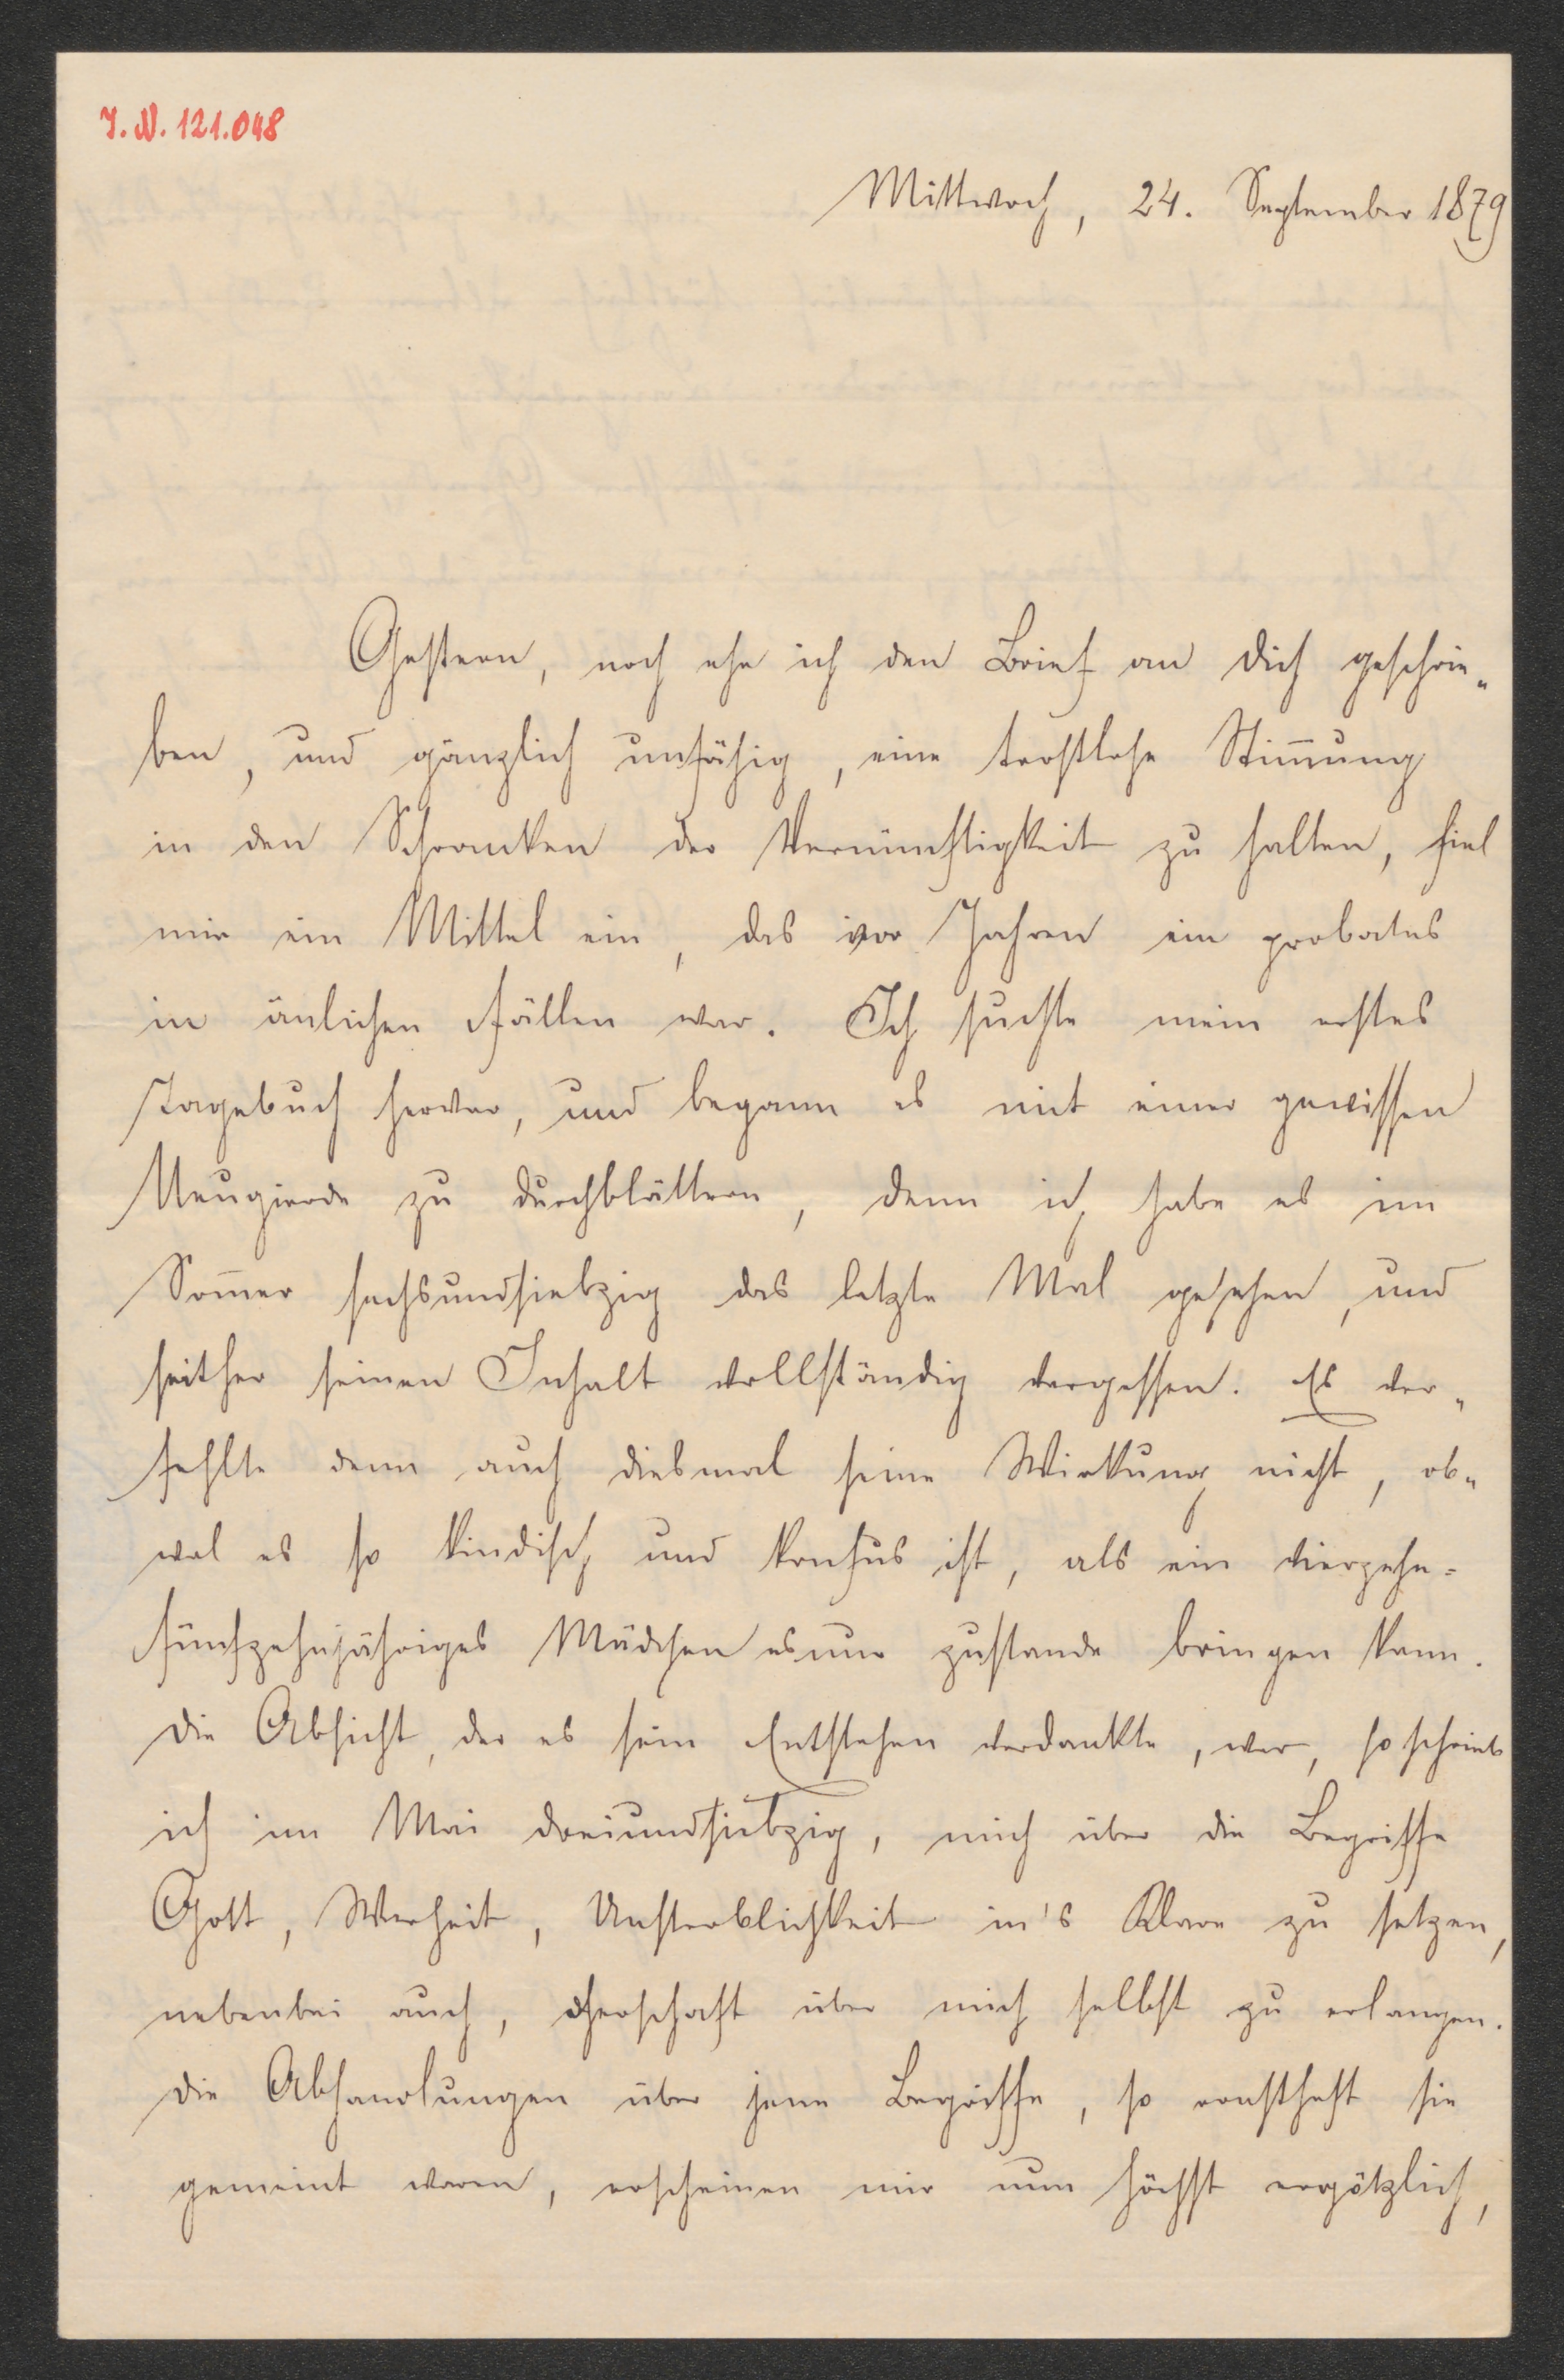 J. N. 121.048
Mittwoch, 24. September 1879
Gestern, noch ehe ich den Brief an Dich geschrie„
ben, und gänzlich unfähig, eine trostlose Stim̄ung
in den Schranken der Vernünftigkeit zu halten, fiel
mir ein Mittel ein, das vor Jahren ein probates
in änlichen Fällen war. Ich suchte mein erstes
Tagebuch hervor, und begann es mit einer gewissen
Neugierde zu durchblättern, denn ich habe es im
Som̄er sechsundsiebzig das letzte Mal gesehen, und
seither seinen Inhalt vollständig vergessen. Es ver„
fehlte denn auch diesmal seine Wirkung nicht, ob„
wol es so kindisch und konfus ist, als ein vierzehn-
fünfzehnjähriges Mädchen es nur zustande bringen kann.
Die Absicht, der es sein Entstehen verdankte, war, so schrieb
ich im Mai dreiundsiebzig, mich über die Begriffe
Gott, Warheit, Unsterblichkeit in's Klare zu setzen,
nebenbei auch, Herschaft über mich selbst zu erlangen.
Die Abhandlungen über jene Begriffe, so ernsthaft sie
gemeint waren, erscheinen mir nun höchst ergötzlich,